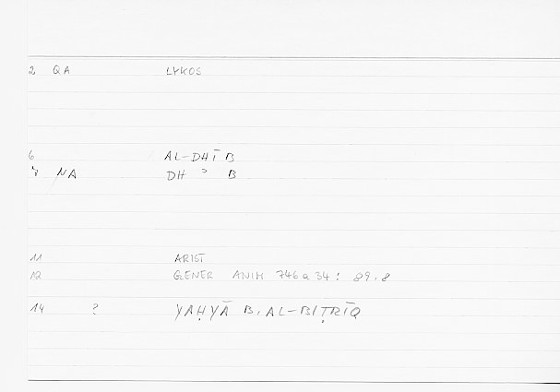 2 QA LYKOS
6 AL-DHĪB
8 NA DH ʾ B
11 ARIST
12 GENER ANIM 746a34: 89.8
14 ? YAḤYĀ B. AL-BIṬRĪQ